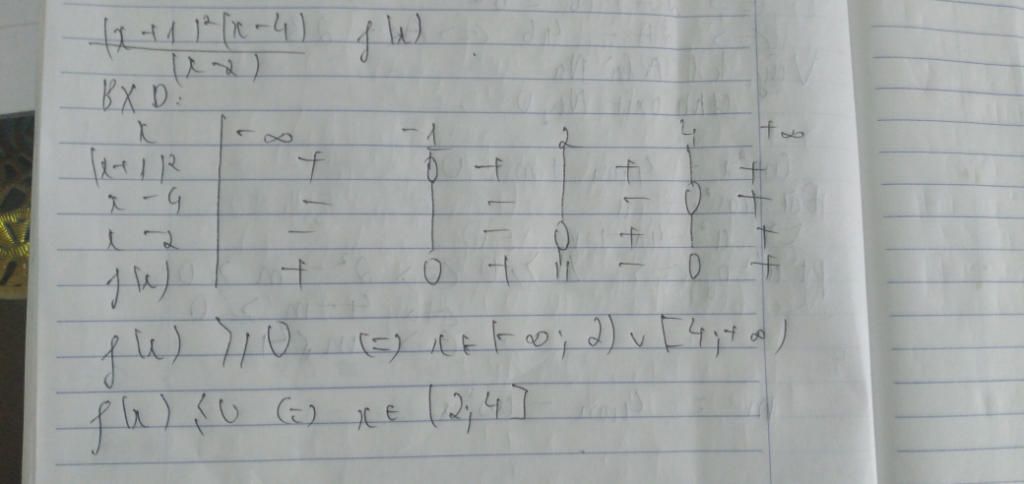 (x+1)²(x-4) f(x)
(x-2)
BXD:
x -∞ -1 2 4 +∞
(x+1)² + 0 + | + | +
x-4 - | - | - 0 +
x-2 - | - 0 + | +
f(x) + 0 + || - 0 +
f(x) ≥ 0 (=) x ∈ (-∞; 2) ∪ [4; +∞)
f(x) ≤ 0 (=) x ∈ (2; 4]